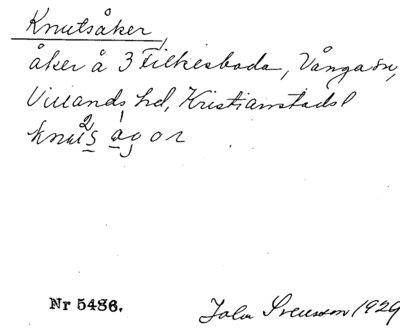 Knutsåker
åker å 3 Filkesboda, Vånga sn,
Villands hd, Kristianstads l
Nr 5486. John Svensson 1929